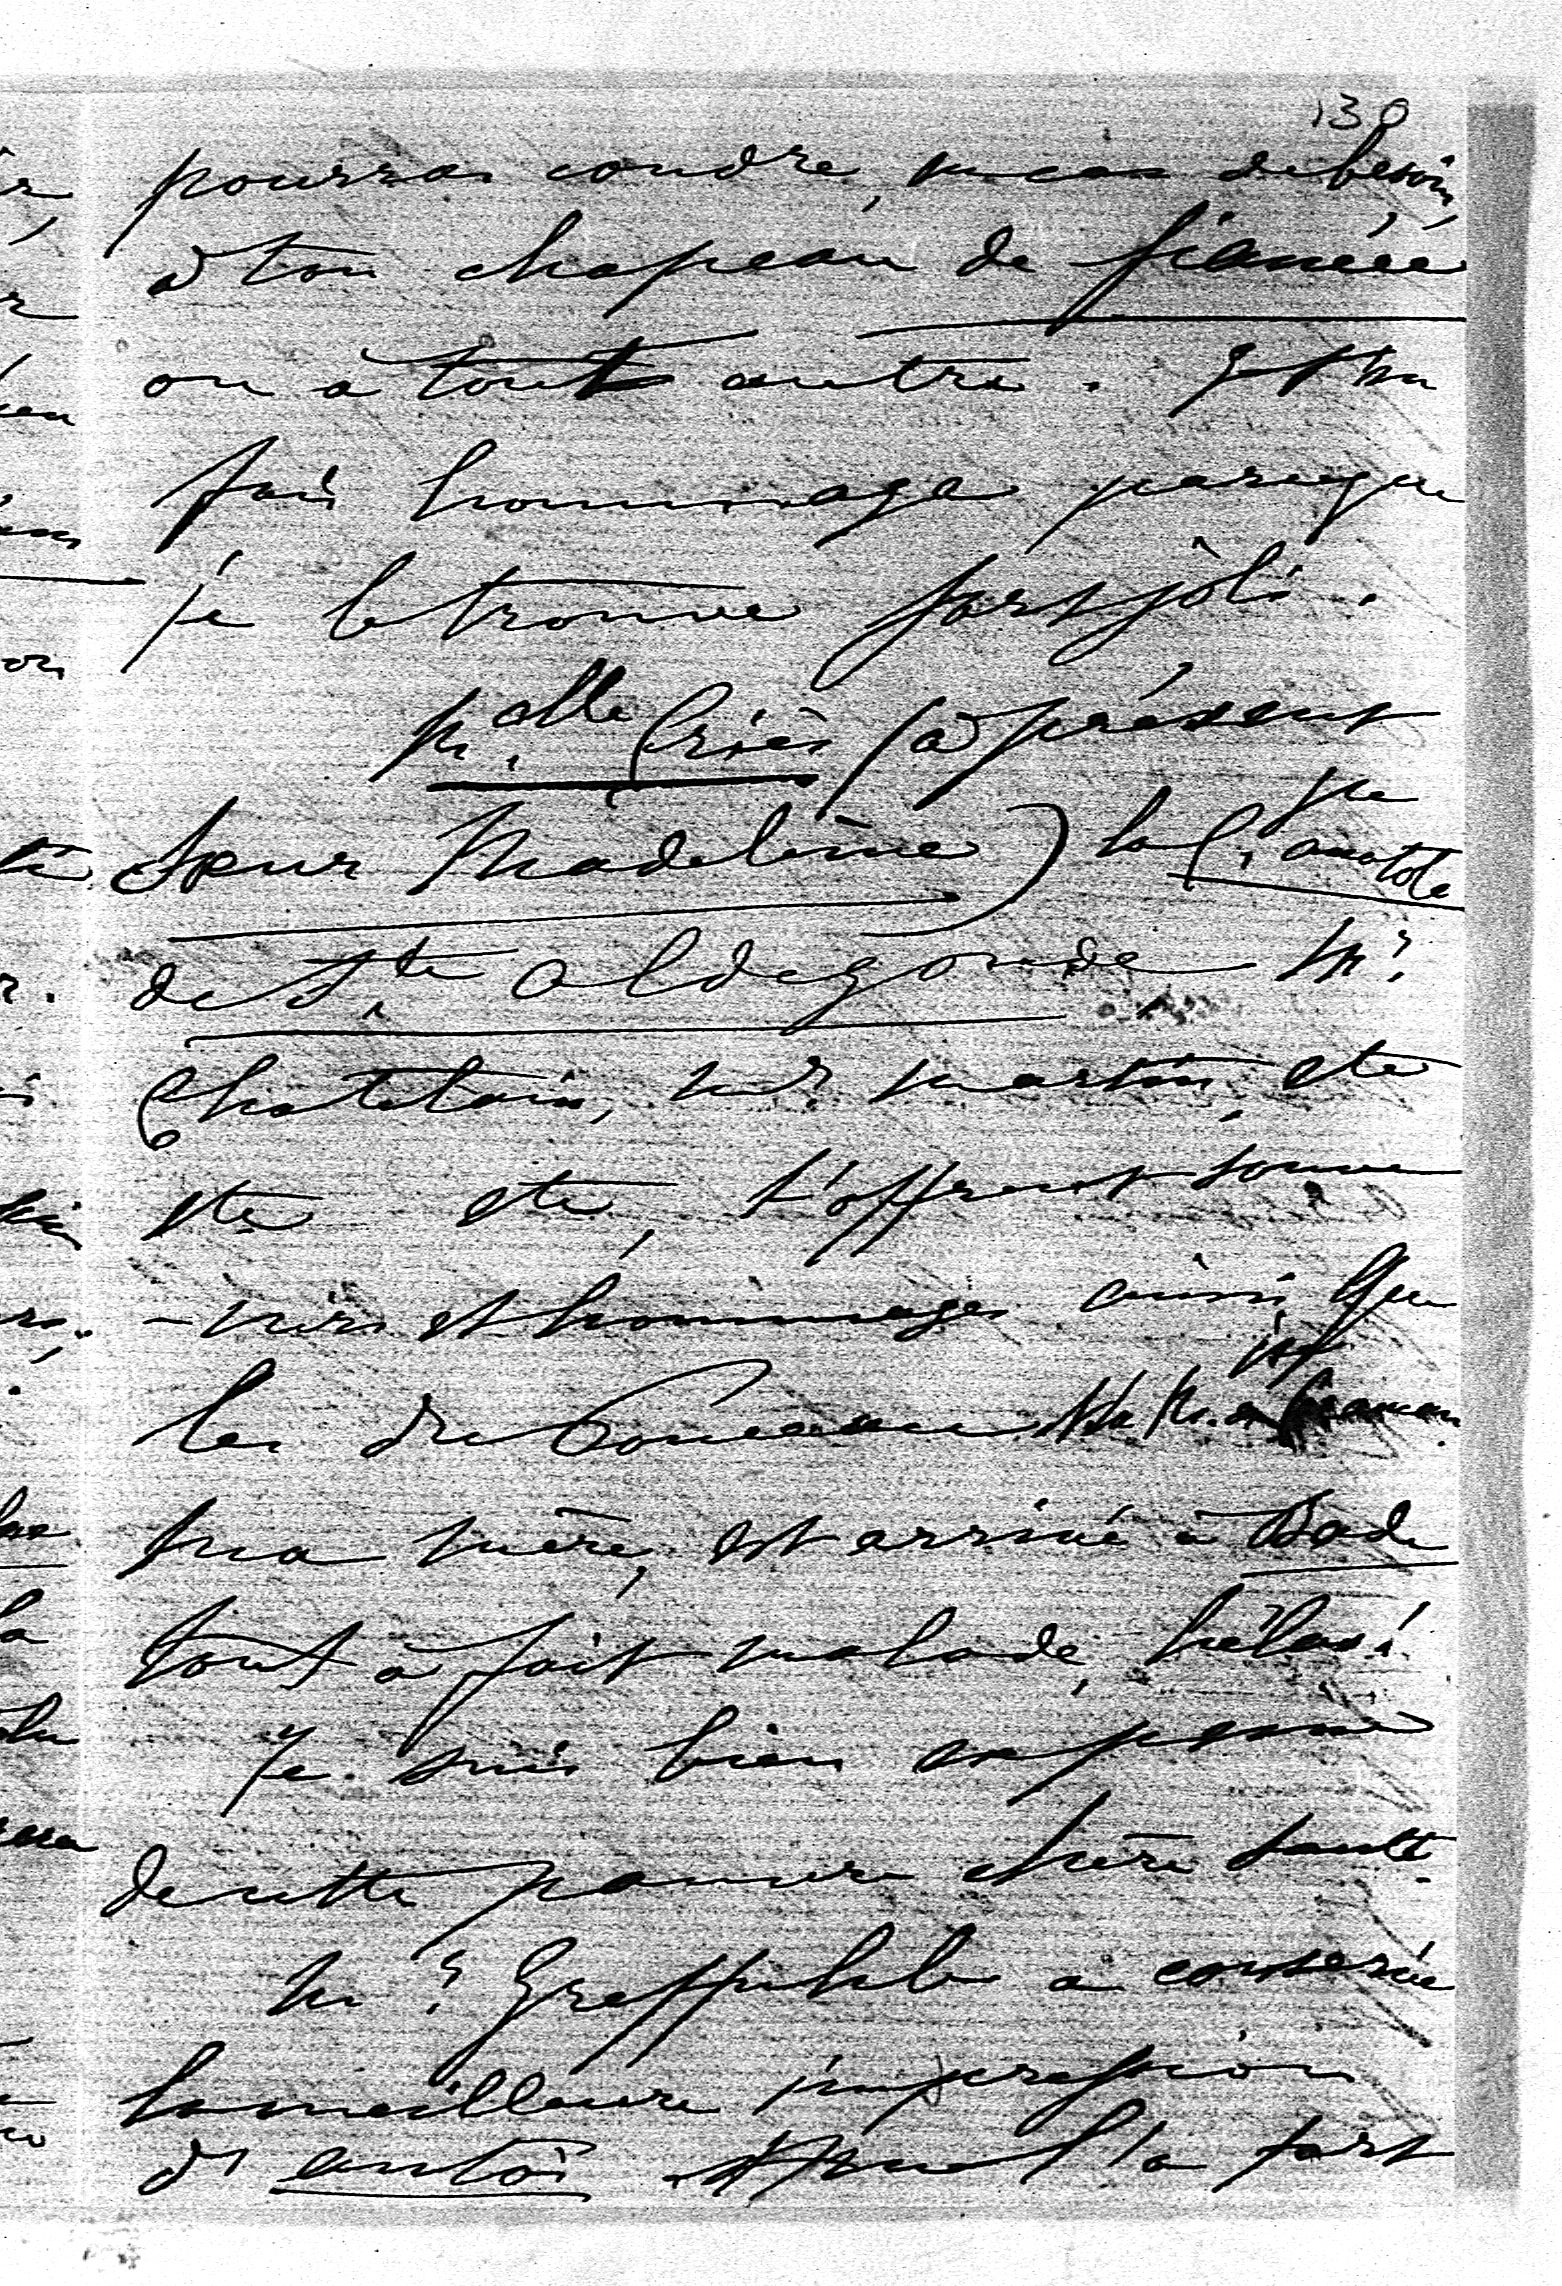 130
pourras coudre, en cas de besoin,
à ton chapeau de fiancée
ou à tout autre. Je t'en
fais hommage parceque
je le trouve fort joli.
Melle Criès (à présent
Sœur Madeleine) la Psse Anatole
de Ste Aldegonde Mr
Chatelain, Mr Martin, etc
etc etc, t'offrent souve
-nirs et hommages ainsi que
les du
ma mère, est arrivé à Bade
tout à fait malade, hélas!
Je suis bien en peine
de cette pauvre chère santé.
Mr Greffulhe a conservé
la meilleure impression
d'Antoi et Prue l'a fort